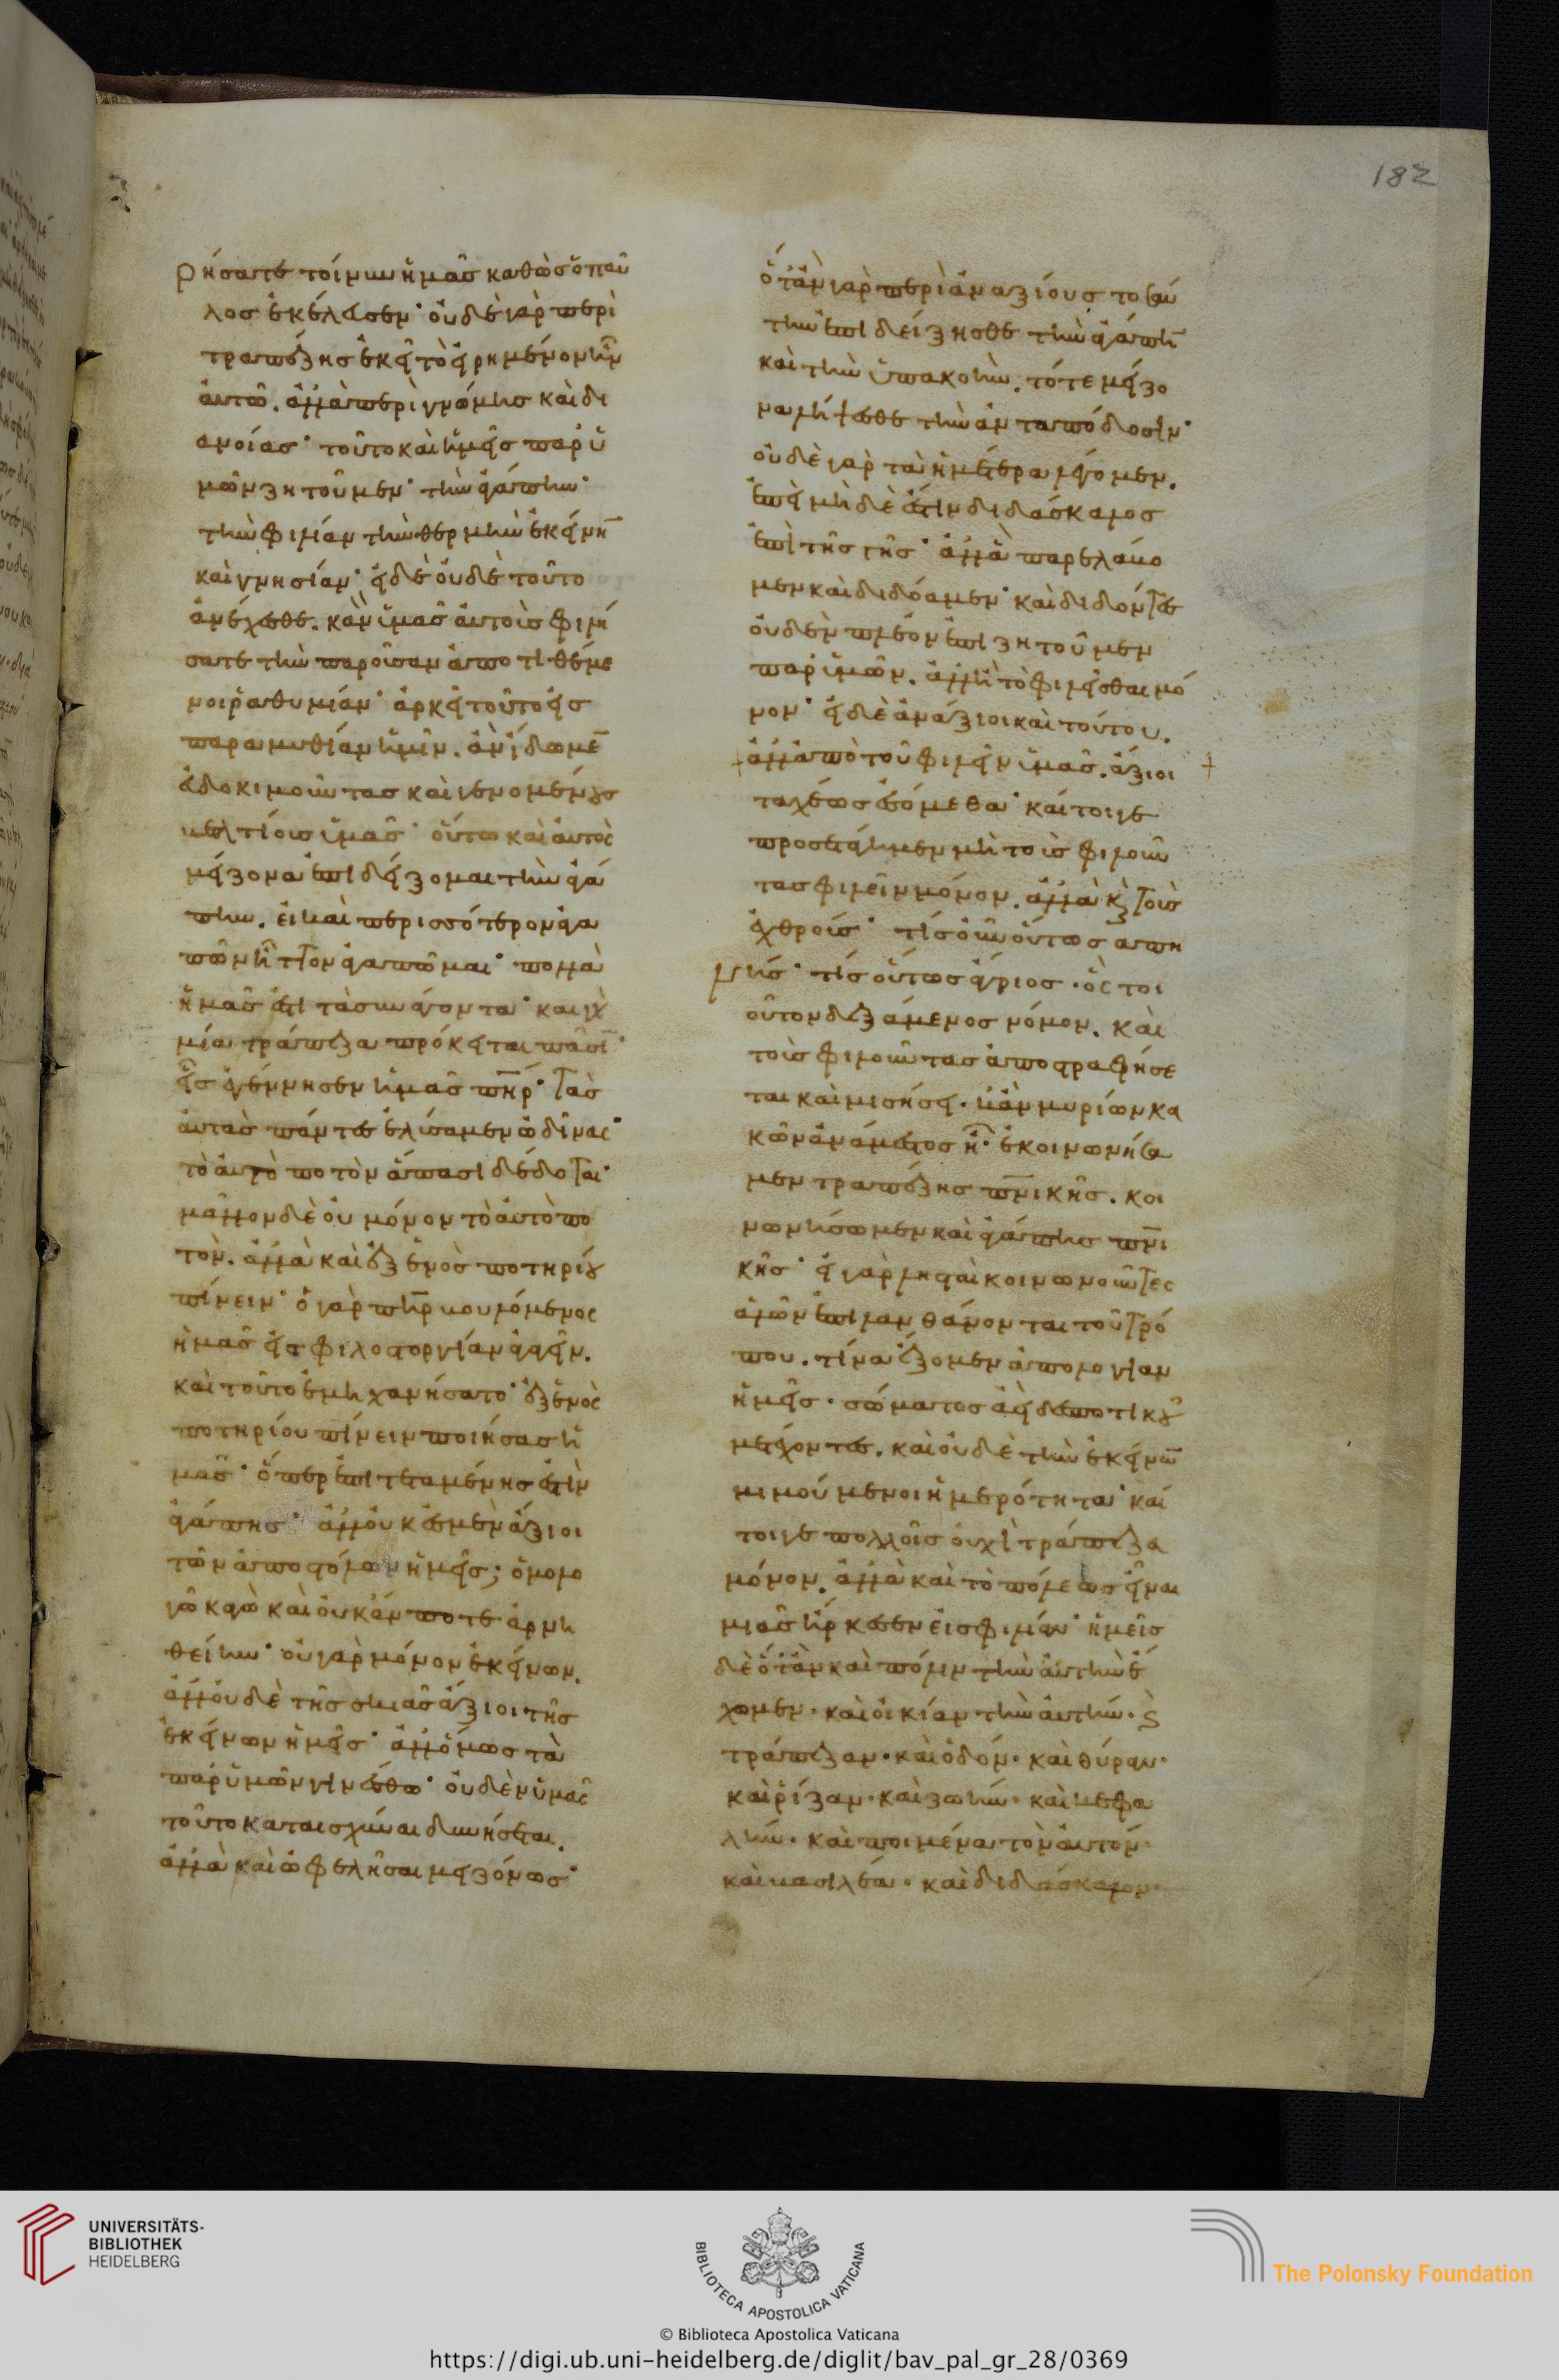 182
ρήσατε τοίνυν ἡμᾶς καθὼς ὁ παῦ
λος ἐκέλευσεν· οὐδὲ γὰρ περὶ
τραπέζης ἐκεῖ τὸ εἰρημένον ἦν
αὐτῶ. ἀλλὰ περὶ γνώμης καὶ δι
ανοίας· τοῦτο καὶ ἡμεῖς παρ' ὑ
μῶν ζητοῦμεν· τὴν ἀγάπην·
τὴν φιλίαν τὴν θερμὴν ἐκείνη̅
καὶ γνησίαν· εἰ δὲ οὐδὲ τοῦτο
ἀνέχεσθε. κἂν ὑμᾶς αὐτοὺς φιλή
σατε τὴν παροῦσαν ἀποτιθέμε
νοι ῥαθυμίαν· ἀρκεῖ τοῦτο εἰς
παραμυθίαν ἡμῖν. ἂν ἴδωμε̅
εὐδοκιμοῦντας καὶ γενομένους
βελτίους ὑμᾶς· οὕτω καὶ αὐτὸς
μείζονα ἐπιδείξομαι τὴν ἀγά
πην. εἰ καὶ περισσότερον ἀγα
πῶν ἧττον ἀγαπῶμαι· πολλὰ
ἡμᾶς ἐστὶ τὰ συνάγοντα· καὶ γὰρ
μία τράπεζα πρόκειται πᾶσι̅·
εἷς ἐγέννησεν ἡμᾶς πηρ· τὰς
αὐτὰς πάντες ἐλύσαμεν ὠδῖνας·
τὸ αὐτὸ ποτὸν ἅπασι δέδοται·
μᾶλλον δὲ οὐ μόνον τὸ αὐτὸ πο
τὸν. ἀλλὰ καὶ ἐξ ἑνὸς ποτηρίου
πίνειν· ὁ γὰρ πηρ βουλόμενος
ἡμᾶς εἰς φιλοστοργίαν ἀγαγεῖν.
καὶ τοῦτο ἐμηχανήσατο· ἐξ ἑνὸς
ποτηρίου πίνειν ποιήσας ἡ
μᾶς· ὅπερ ἐπιτεταμένης ἐστὶν
ἀγάπης· ἀλλ' οὐκ ἐσμὲν ἄξιοι
τῶν ἀποστόλων ἡμεῖς; ὁμολο
γῶ κἀγὼ καὶ οὐκ ἄν ποτε ἀρνη
θείην· οὐ γὰρ μόνον ἐκείνων.
ἀλλ' οὐδὲ τῆς σκιᾶς ἄξιοι τῆς
ἐκείνων ἡμεῖς· ἀλλ' ὅμως τὰ
παρ' ὑμῶν γινέσθω· οὐδὲν ὑμᾶς
τοῦτο καταισχύναι δυνήσεται.
ἀλλὰ καὶ ὠφελῆσαι μειζόνως·
ὅταν γὰρ περὶ ἀναξίους τοσαύ
την ἐπιδείξησθε τὴν ἀγάπη̅
καὶ τὴν ὑπακοὴν. τότε μείζο
να λήψεσθε τὴν ἀνταπόδοσιν·
οὐδὲ γὰρ τὰ ἡμέτερα λέγομεν.
ἐπεὶ μὴ δὲ ἔστιν διδάσκαλος
ἐπὶ τῆς γῆς· ἀλλὰ παρελάβο
μεν καὶ διδόαμεν· καὶ διδόντες
οὐδὲν πλέον ἐπιζητοῦμεν
παρ' ὑμῶν. ἀλλ' ἢ τὸ φιλεῖσθαι μό
νον· εἰ δὲ ἀνάξιοι καὶ τούτου.
ἀλλ' ἀπὸ τοῦ φιλεῖν ὑμᾶς. ἄξιοι
ταχέως ἐσόμεθα· καίτοιγε
προσετάγημεν μὴ τοὺς φιλοῦν
τας φιλεῖν μόνον. ἀλλὰ κ τοὺς
ἐχθρούς· τίς οὖν οὕτως ἀπη
νής· τίς οὕτως ἄγριος· ὃς τοι
οῦτον δεξάμενος νόμον. καὶ
τοὺς φιλοῦντας ἀποστραφήσε
ται καὶ μισήσει. κἂν μυρίων κα
κῶν ἀνάμεστος ἦ· ἐκοινωνήσα
μεν τραπέζης πνικῆς. κοι
νωνήσωμεν καὶ ἀγάπης πνι
κῆς· εἰ γὰρ λησταὶ κοινωνοῦντες
ἁλῶν ἐπιλανθάνονται τοῦ τρό
που. τίνα ἕξομεν ἀπολογίαν
ἡμεῖς· σώματος ἀεὶ δεσποτικοῦ
μετέχοντες. καὶ οὐδὲ τὴν ἐκείνω̅
μιμούμενοι ἡμερότητα· καί
τοιγε πολλοῖς οὐχὶ τράπεζα
μόνον. ἀλλὰ καὶ τὸ πόλεως εἶναι
μιᾶς ἤρκεσεν εἰς φιλίαν· ἡμεῖς
δὲ ὅταν καὶ πόλιν τὴν αὐτὴν ἔ
χωμεν· καὶ οἰκίαν τὴν αὐτήν· ϛ
τράπεζαν· καὶ ὁδόν· καὶ θύραν·
καὶ ῥίζαν· καὶ ζωήν· καὶ κεφα
λήν· καὶ ποιμένα τὸν αὐτόν·
καὶ βασιλέα· καὶ διδάσκαλον·
UNIVERSITÄTS-
BIBLIOTHEK
HEIDELBERG
BIBLIOTECA APOSTOLICA VATICANA
The Polonsky Foundation
© Biblioteca Apostolica Vaticana
https://digi.ub.uni-heidelberg.de/diglit/bav_pal_gr_28/0369